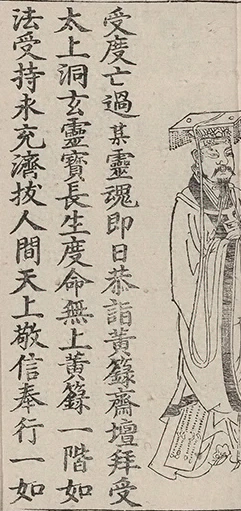 受度亡過某靈魂即日恭詣黃籙齋壇拜受
太上洞玄靈寶長生度命無上黃籙一階如
法受持永充濟拔人間天上敬信奉行一如